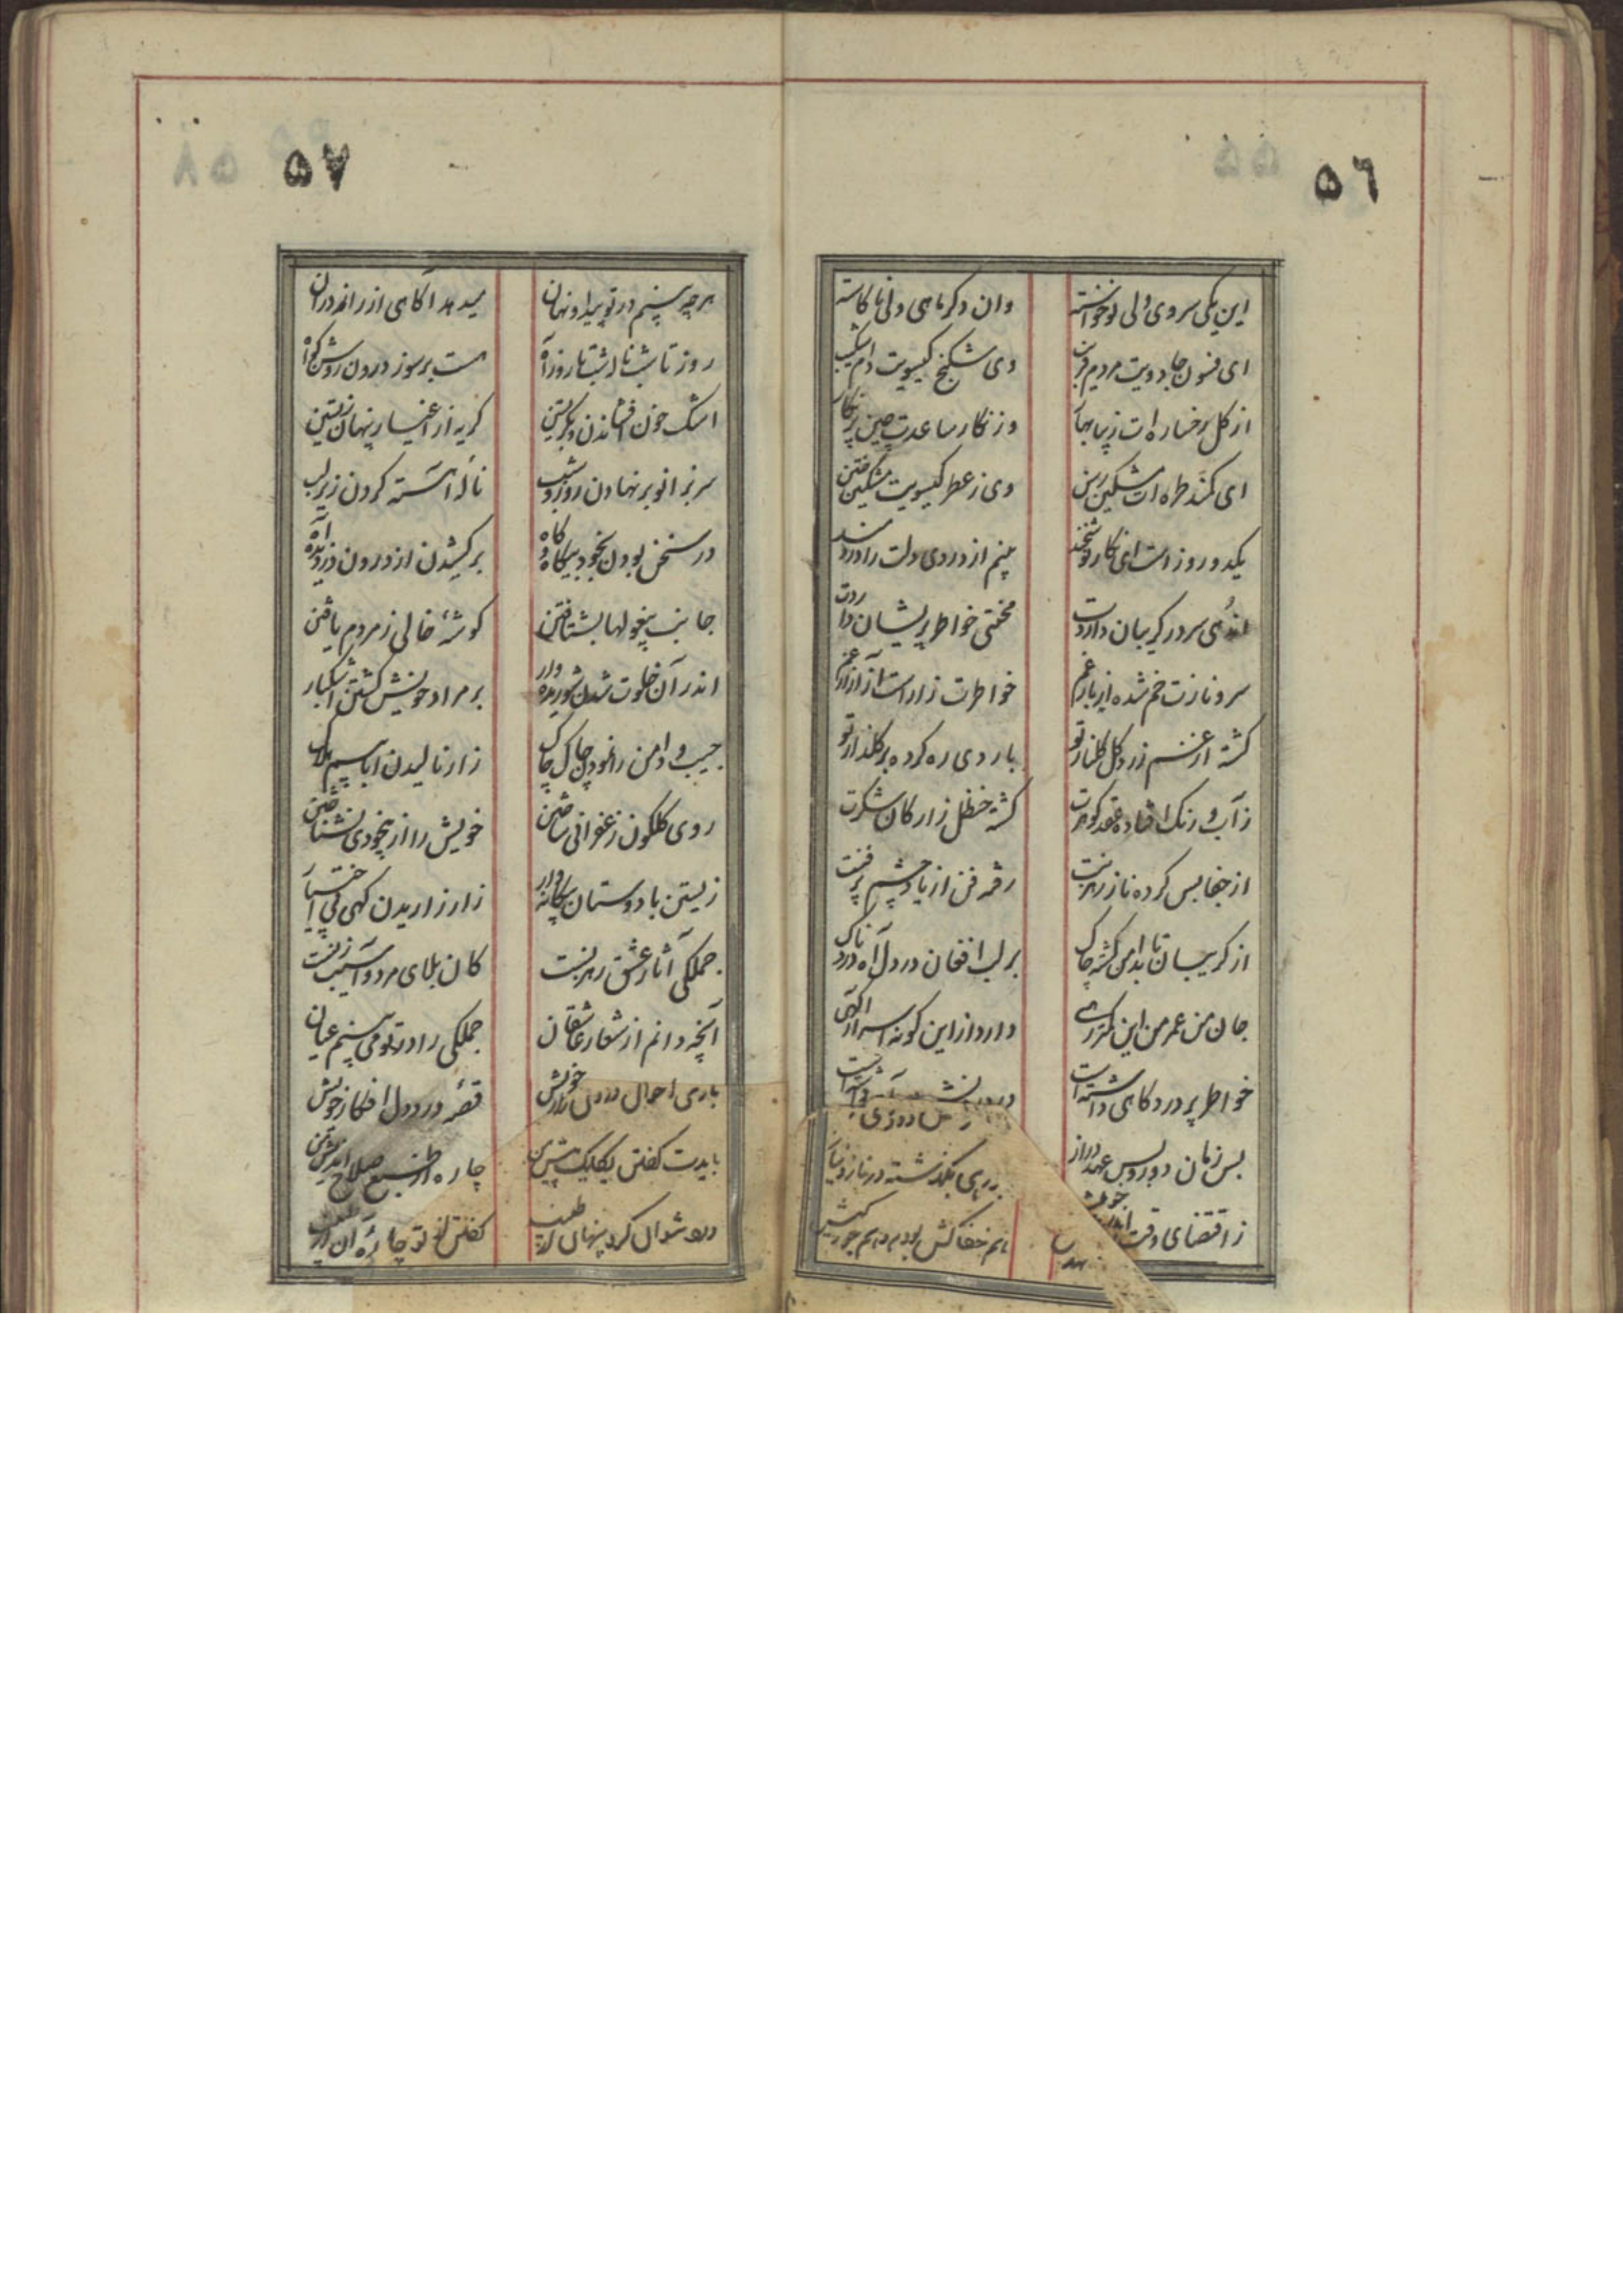 ۵٦
این یکی سروی ولی نوخواسته
وان دکر ماهی ولی ناکاسته
ای فسون جادویت مردم فریب
وی شکنج کیسویت دام شکیب
از کل رخساره ات زیبا بهار
وز نکار ساعدت چین پرنکار
ای کمند طره ات مشکین رسن
وی ز عطر کیسویت مشکین ختن
یکدو روز است ای نکار نوشخند
بینم از دردی دلت را دردمند
اندُهی سر در کریبان داردت
محنتی خواطر پریشان داردت
سرو نازت خم شده از بار غم
خواطرت زار است از آزار غم
کشته از غم زرد کل کلنار تو
باد دی ره کرده بر کلذار تو
ز آب و رنک افتاده عقد کوهرت
کشته حنظل زار کان شکرت
از جفا بس کرده ناز رهزنت
رفته فن از یاد چشم پر فنت
از کریبان تا بدامن کشته چاک
بر لب افغان در دل آه دردناک
جان من عمر من این کمتر رهی
دارد از این کونه اسرار آکهی
خواطر پر درد کاهی داشته است
بس زمان دور و بس عهد دراز
بکذشته در ناز و نیاز
ز اقتضای وقت
هم جفاکش بودم و هم جورکش
۵۷
هر چه بینم در تو پیدا و نهان
میدهد آکاهی از راز اندران
روز تا شب ناله شب تا روز آه
هست بر سوز درون روشن کواه
اشک خون افشاندن و بکریستن
کریه از اغیار پنهان زیستن
سر بزانو بر نهادن روز و شب
ناله آهسته کردن زیر لب
در سخن بودن بخود بیکاه و کاه
بر کشیدن از درون دزدیده آه
جانب بیغولها بشتافتن
کوشهٔ خالی ز مردم یافتن
اندر آن خلوت شدن شوریده وار
بر مراد خویش کشتن اشکبار
جیب و دامن را نمودن چاک چاک
زار نالیدن اباسیم هلاک
روی کلکون زعفرانی ساختن
خویش را از بیخودی نشناختن
زیستن با دوستان بیکانه وار
زار زاریدن کهی بی اختیار
جملکی آثار عشق رهزنست
کان بلای مرد و آسیب زنست
آنچه دانم از شعار عاشقان
جملکی را در تو می بینم عیان
باری احوال درون زار خویش
قصهٔ درد دل افکار خویش
بایدت کفتن یکایک پیش من
چاره از طبع صلاح اندیش من
درد نتوان کرد پنهان از طبیب
کفتن از تو چارهٔ آن از طبیب